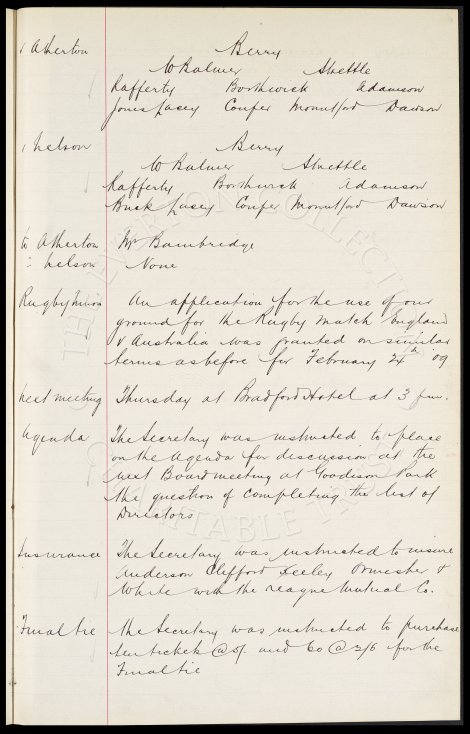 v Atherton Berry
W Balmer Strettle
Rafferty Borthwick Adamson
Jones Lacey Couper Mountford Dawson
v Nelson Berry
W Balmer Strettle
Rafferty Borthwick Adamson
Buck Lacey Couper Mountford Dawson
to Atherton Mr Bainbridge
: Nelson None
Rugby Union An application for the use of our
ground for the Rugby Match England
v Australia was granted on similar
terms as before for February 24th '09
next meeting Thursday at Bradford Hotel at 3 pm.
Agenda The Secretary was instructed to place
on the Agenda for discussion at the
next Board meeting at Goodison Park
the question of completing the list of
Directors
Insurance The Secretary was instructed to insure
Anderson Clifford Keeley Ormester &
White with the League Mutual Co.
Final tie The Secretary was instructed to purchase
ten tickets @ 5/ and 60 @ 2/6 for the
Final tie
THE EVERTON COLLECTION
CHARITABLE TRUST